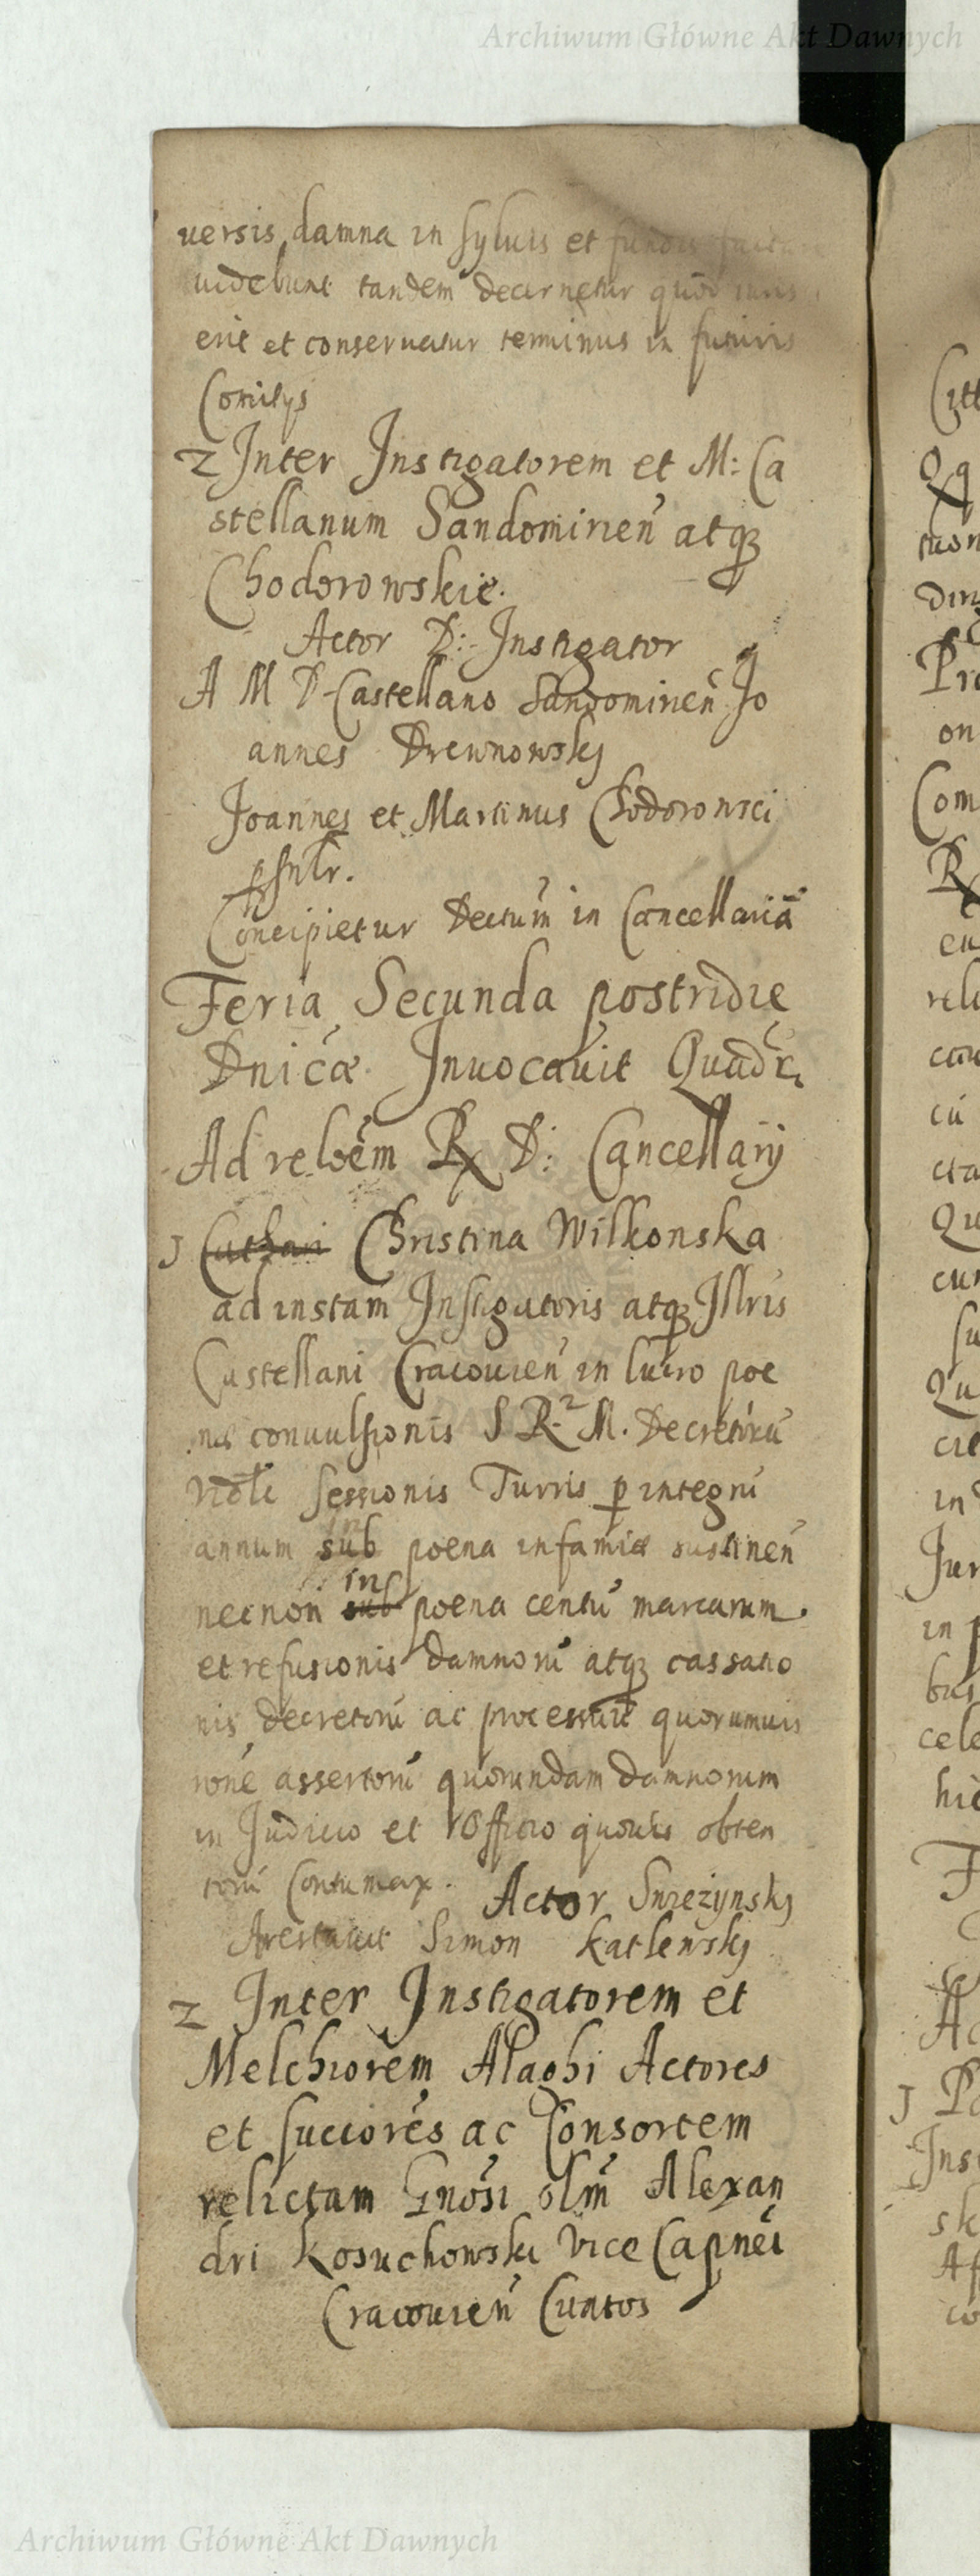 Archiwum Główne Akt Dawnych
uersis damna in syluis et fundis
uidebunt tandem decernetur quod
erit et conseruatur terminus in futuris
Comitijs
2 Inter Instigatorem et M: Ca
stellanum Sandomirien̄ atq₃
Chodorowskie.
Actor D: Instigator
A M D Castellano Sandomirien̄ Jo
annes Drewnowskj
Joannes et Martinus Chodorowsci
pn̄tr.
Concipietur Dectum̄ in Cancellariā
Feria Secunda postridie
Dnicæ Inuocauit Quadr.
Ad reloēm Rx D: Cancellarij
J Cathari Christina Wilkonska
ad instam̄ Instigatoris atq₃ Illris
Castellani Cracouien̄ in lucro poe
næ conuulsionis S R. M. Decretorū
sessionis Turris p integrū
annum sub in poena infamiæ sustinen̄
necnon sub in poena centū marcarum
et refusionis damnorū atq₃ cassatio
nis decretorū ac processuū quorumuis
rōne assertorū quorundam damnorum
in Judicio et Officio quouis obten
torū Contumax. Actor Snieżynskj
Arestauit Simon Katlewskj
2 Inter Instigatorem et
Melchiorem Alaghi Actores
et succiorēs ac Consortem
relictam Gnōsi olm̄ Alexan
dri Kosuchowski Vice Capnei
Cracouien̄ Cuntos
Archiwum Główne Akt Dawnych